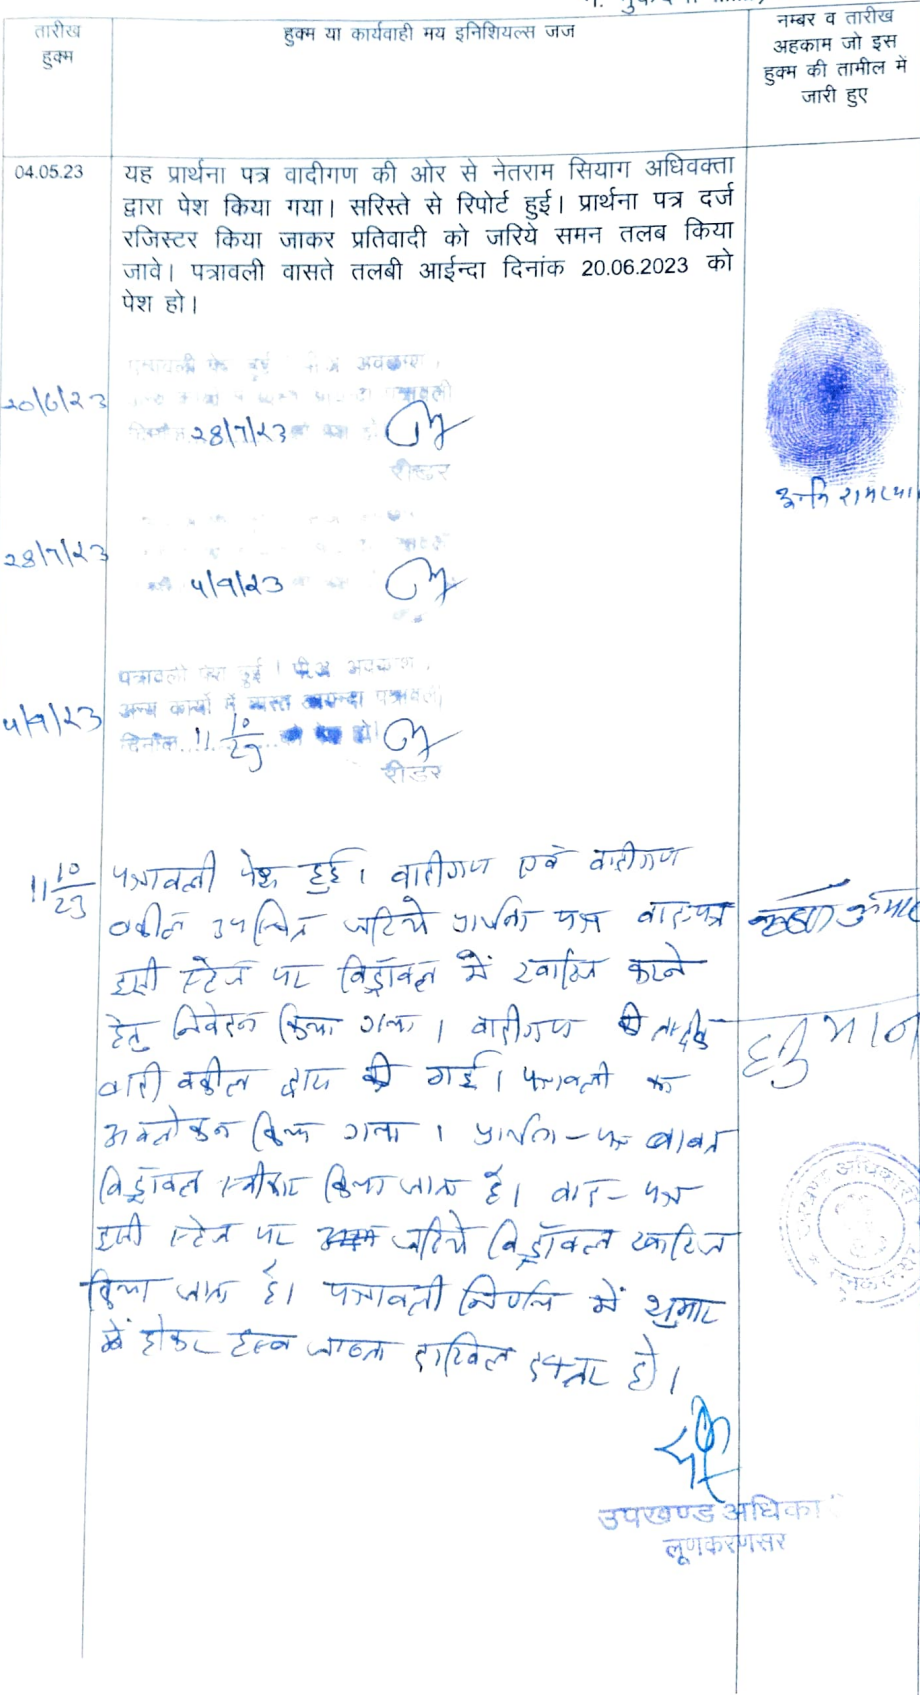 तारीख
हुक्म
हुक्म या कार्यवाही मय इनिशियल्स जज
नम्बर व तारीख
अहकाम जो इस
हुक्म की तामील में
जारी हुए
04.05.23
यह प्रार्थना पत्र वादीगण की ओर से नेतराम सियाग अधिवक्ता
द्वारा पेश किया गया। सरिस्ते से रिपोर्ट हुई। प्रार्थना पत्र दर्ज
रजिस्टर किया जाकर प्रतिवादी को जरिये समन तलब किया
जावे। पत्रावली वास्ते तलबी आईन्दा दिनांक 20.06.2023 को
पेश हो।
20/6/23
पत्रावली पेश हुई अवकाश
पत्रावली
28/7/23
रीडर
28/7/23
4/9/23
4/9/23
पत्रावली पेश हुई। पी.अ. अवकाश,
अन्य कार्यों में व्यस्त आयन्दा पत्रावली
दिनांक 11/10/23 को पेश हो।
रीडर
11/10/23
पत्रावली पेश हुई। वादीगण एवं वादीगण
वकील उपस्थित जरिये प्रार्थना पत्र वादपत्र
इसी स्टेज पर विड्रॉवल में खारिज करने
हेतु निवेदन किया गया। वादीगण की
वादी वकील द्वारा की गई। पत्रावली का
अवलोकन किया गया। प्रार्थना-पत्र बाबत
विड्रॉवल स्वीकार किया जाता है। वाद-पत्र
इसी स्टेज पर जरिये विड्रॉवल खारिज
किया जाता है। पत्रावली निर्णित में शुमार
होकर दाखिल दफ्तर हो।
कुमार
हनुमान
उपखण्ड अधिका
लूणकरणसर